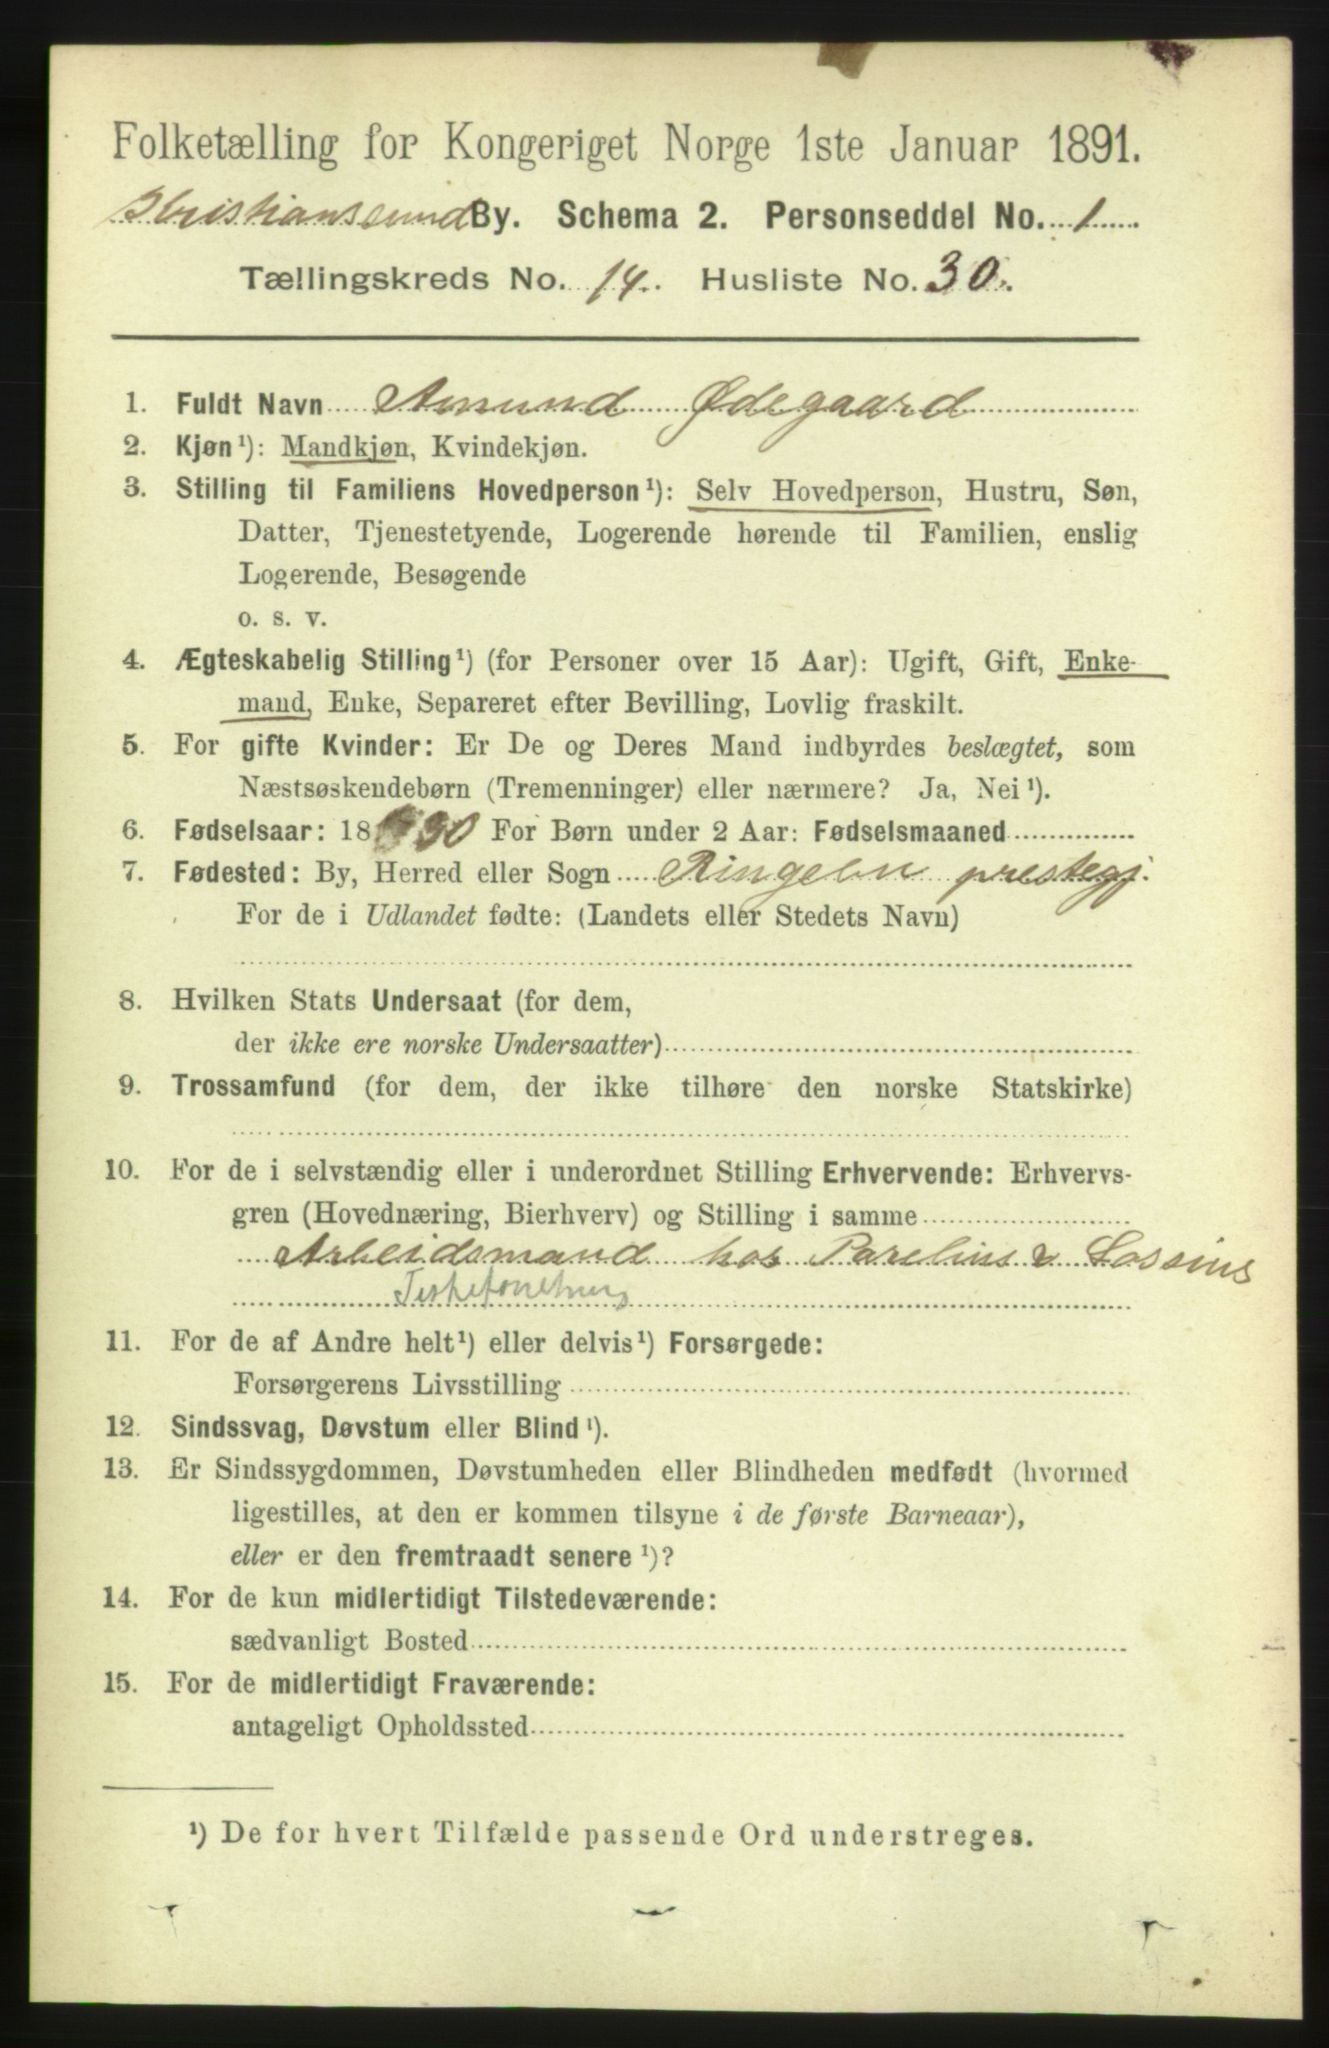 Folketælling for Kongeriget Norge 1ste Januar 1891.
Christianssund By. Schema 2. Personseddel No. 1
Tællingskreds No. 14. Husliste No. 30.
1. Fuldt Navn Amund Ødegaard
2. Kjøn¹): Mandkjøn, Kvindekjøn.
3. Stilling til Familiens Hovedperson¹): Selv Hovedperson, Hustru, Søn,
Datter, Tjenestetyende, Logerende hørende til Familien, enslig
Logerende, Besøgende
o. s. v.
4. Ægteskabelig Stilling¹) (for Personer over 15 Aar): Ugift, Gift, Enke-
mand, Enke, Separeret efter Bevilling, Lovlig fraskilt.
5. For gifte Kvinder: Er De og Deres Mand indbyrdes beslægtet, som
Næstsøskendebørn (Tremenninger) eller nærmere? Ja, Nei¹).
6. Fødselsaar: 1830 For Børn under 2 Aar: Fødselsmaaned
7. Fødested: By, Herred eller Sogn Ringebu prestegj.
For de i Udlandet fødte: (Landets eller Stedets Navn)
8. Hvilken Stats Undersaat (for dem,
der ikke ere norske Undersaatter)
9. Trossamfund (for dem, der ikke tilhøre den norske Statskirke)
10. For de i selvstændig eller i underordnet Stilling Erhvervende: Erhvervs-
gren (Hovednæring, Bierhverv) og Stilling i samme
Arbeidsmand hos Parelius & Lossius
11. For de af Andre helt¹) eller delvis¹) Forsørgede:
Forsørgerens Livsstilling
12. Sindssvag, Døvstum eller Blind¹).
13. Er Sindssygdommen, Døvstumheden eller Blindheden medfødt (hvormed
ligestilles, at den er kommen tilsyne i de første Barneaar),
eller er den fremtraadt senere¹)?
14. For de kun midlertidigt Tilstedeværende:
sædvanligt Bosted
15. For de midlertidigt Fraværende:
antageligt Opholdssted
¹) De for hvert Tilfælde passende Ord understreges.